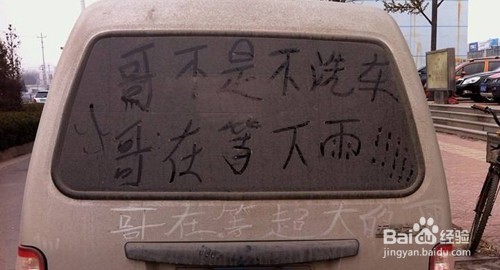 哥不是不洗车
哥在等下雨!!!!!
哥在等超大的
Baidu经验
jingyan.baidu.com